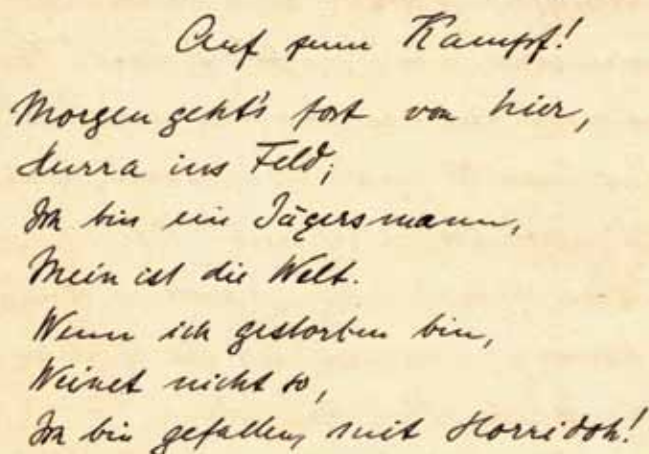 Auf zum Kampf!
Morgen geht's fort von hier,
Hurra ins Feld;
Ich bin ein Jägersmann,
Mein ist die Welt.
Wenn ich gestorben bin,
Weinet nicht so,
Ich bin gefallen, mit Horridoh!